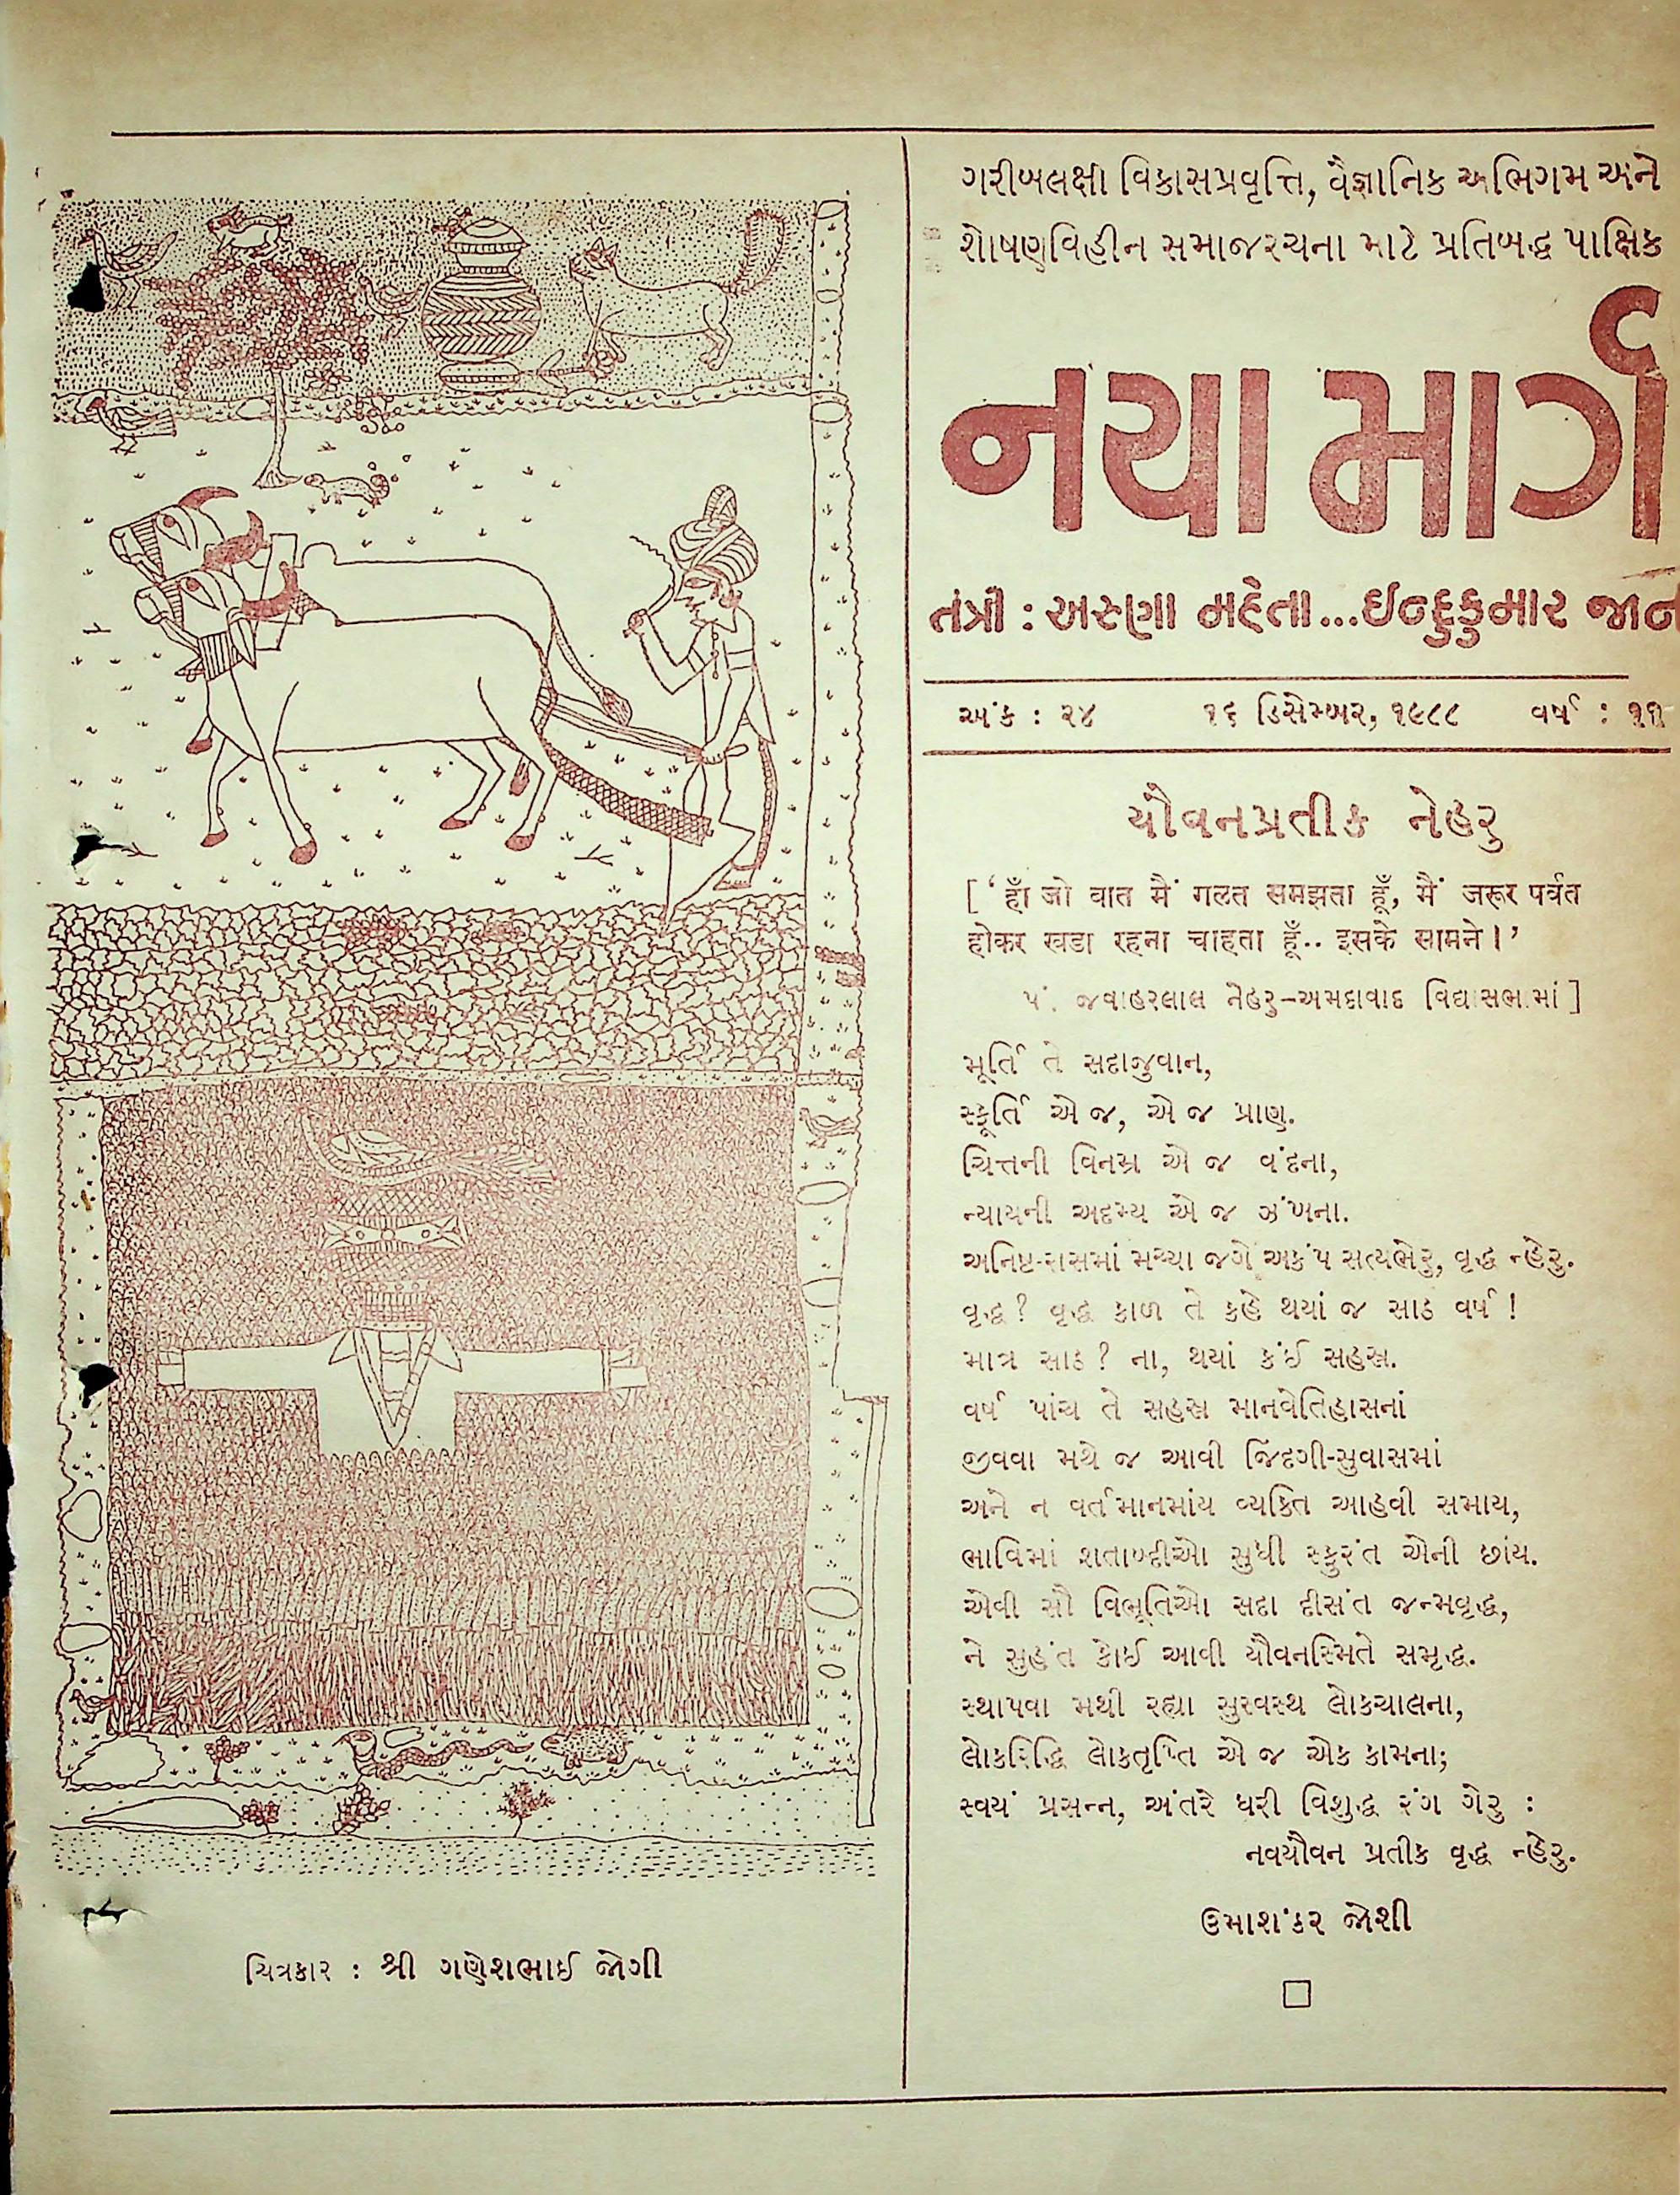 ગરીબલક્ષી વિકાસપ્રવૃત્તિ, વૈજ્ઞાનિક અભિગમ અને
શોષણવિહીન સમાજરચના માટે પ્રતિબદ્ધ પાક્ષિક
નયા માર્ગ
તંત્રી : અરુણા મહેતા...ઈન્દુકુમાર જાન
અંક : ૨૪ ૧૬ ડિસેમ્બર, ૧૯૮૮ વર્ષ : ૧૧
યૌવનપ્રતીક નેહરુ
[ ‘ हाँ जो वात मैं गलत समझता हूँ, मैं जरूर पर्वत
होकर खडा रहना चाहता हूँ.. इसके सामने।’
પં. જવાહરલાલ નેહરુ–અમદાવાદ વિદ્યાસભામાં ]
મૂર્તિ તે સદાજુવાન,
સ્ફૂર્તિ એ જ, એ જ પ્રાણ.
ચિત્તની વિનમ્ર એ જ વંદના,
ન્યાયની અદમ્ય એ જ ઝંખના.
અનિષ્ટ-રાસમાં મચ્યા જગે અકંપ સત્યભેરુ, વૃદ્ધ ન્હેરુ.
વૃદ્ધ ? વૃદ્ધ કાળ તે કહે થયાં જ સાઠ વર્ષ !
માત્ર સાઠ ? ના, થયાં કંઈ સહસ્ર.
વર્ષ પાંચ તે સહસ્ર માનવેતિહાસનાં
જીવવા મથે જ આવી જિંદગી-સુવાસમાં
અને ન વર્તમાનમાંય વ્યક્તિ આહવી સમાય,
ભાવિમાં શતાબ્દીઓ સુધી સ્ફુરંત એની છાંય.
એવી સૌ વિભૂતિઓ સદા દીસંત જન્મવૃદ્ધ,
ને સુહંત કોઈ આવી યૌવનસ્મિતે સમૃદ્ધ.
સ્થાપવા મથી રહ્યા સુસ્વસ્થ લોકચાલના,
લોકરિદ્ધિ લોકતૃપ્તિ એ જ એક કામના;
સ્વયં પ્રસન્ન, અંતરે ધરી વિશુદ્ધ રંગ ગેરુ :
નવયૌવન પ્રતીક વૃદ્ધ ન્હેરુ.
ઉમાશંકર જોશી
ચિત્રકાર : શ્રી ગણેશભાઈ જોગી